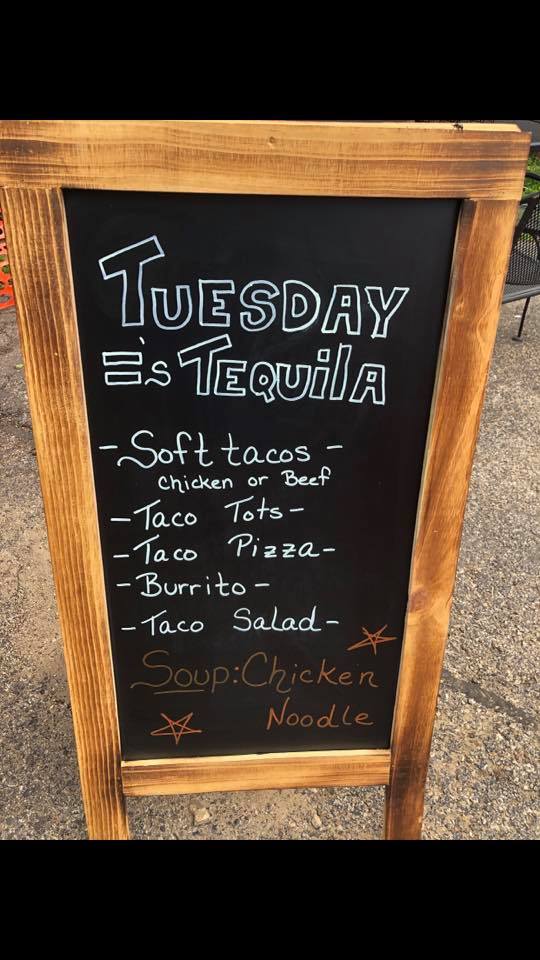 TUESDAY
='s TEQUilA
- Soft tacos -
Chicken or Beef
- Taco Tots -
- Taco Pizza -
- Burrito -
- Taco Salad -
Soup: Chicken
Noodle